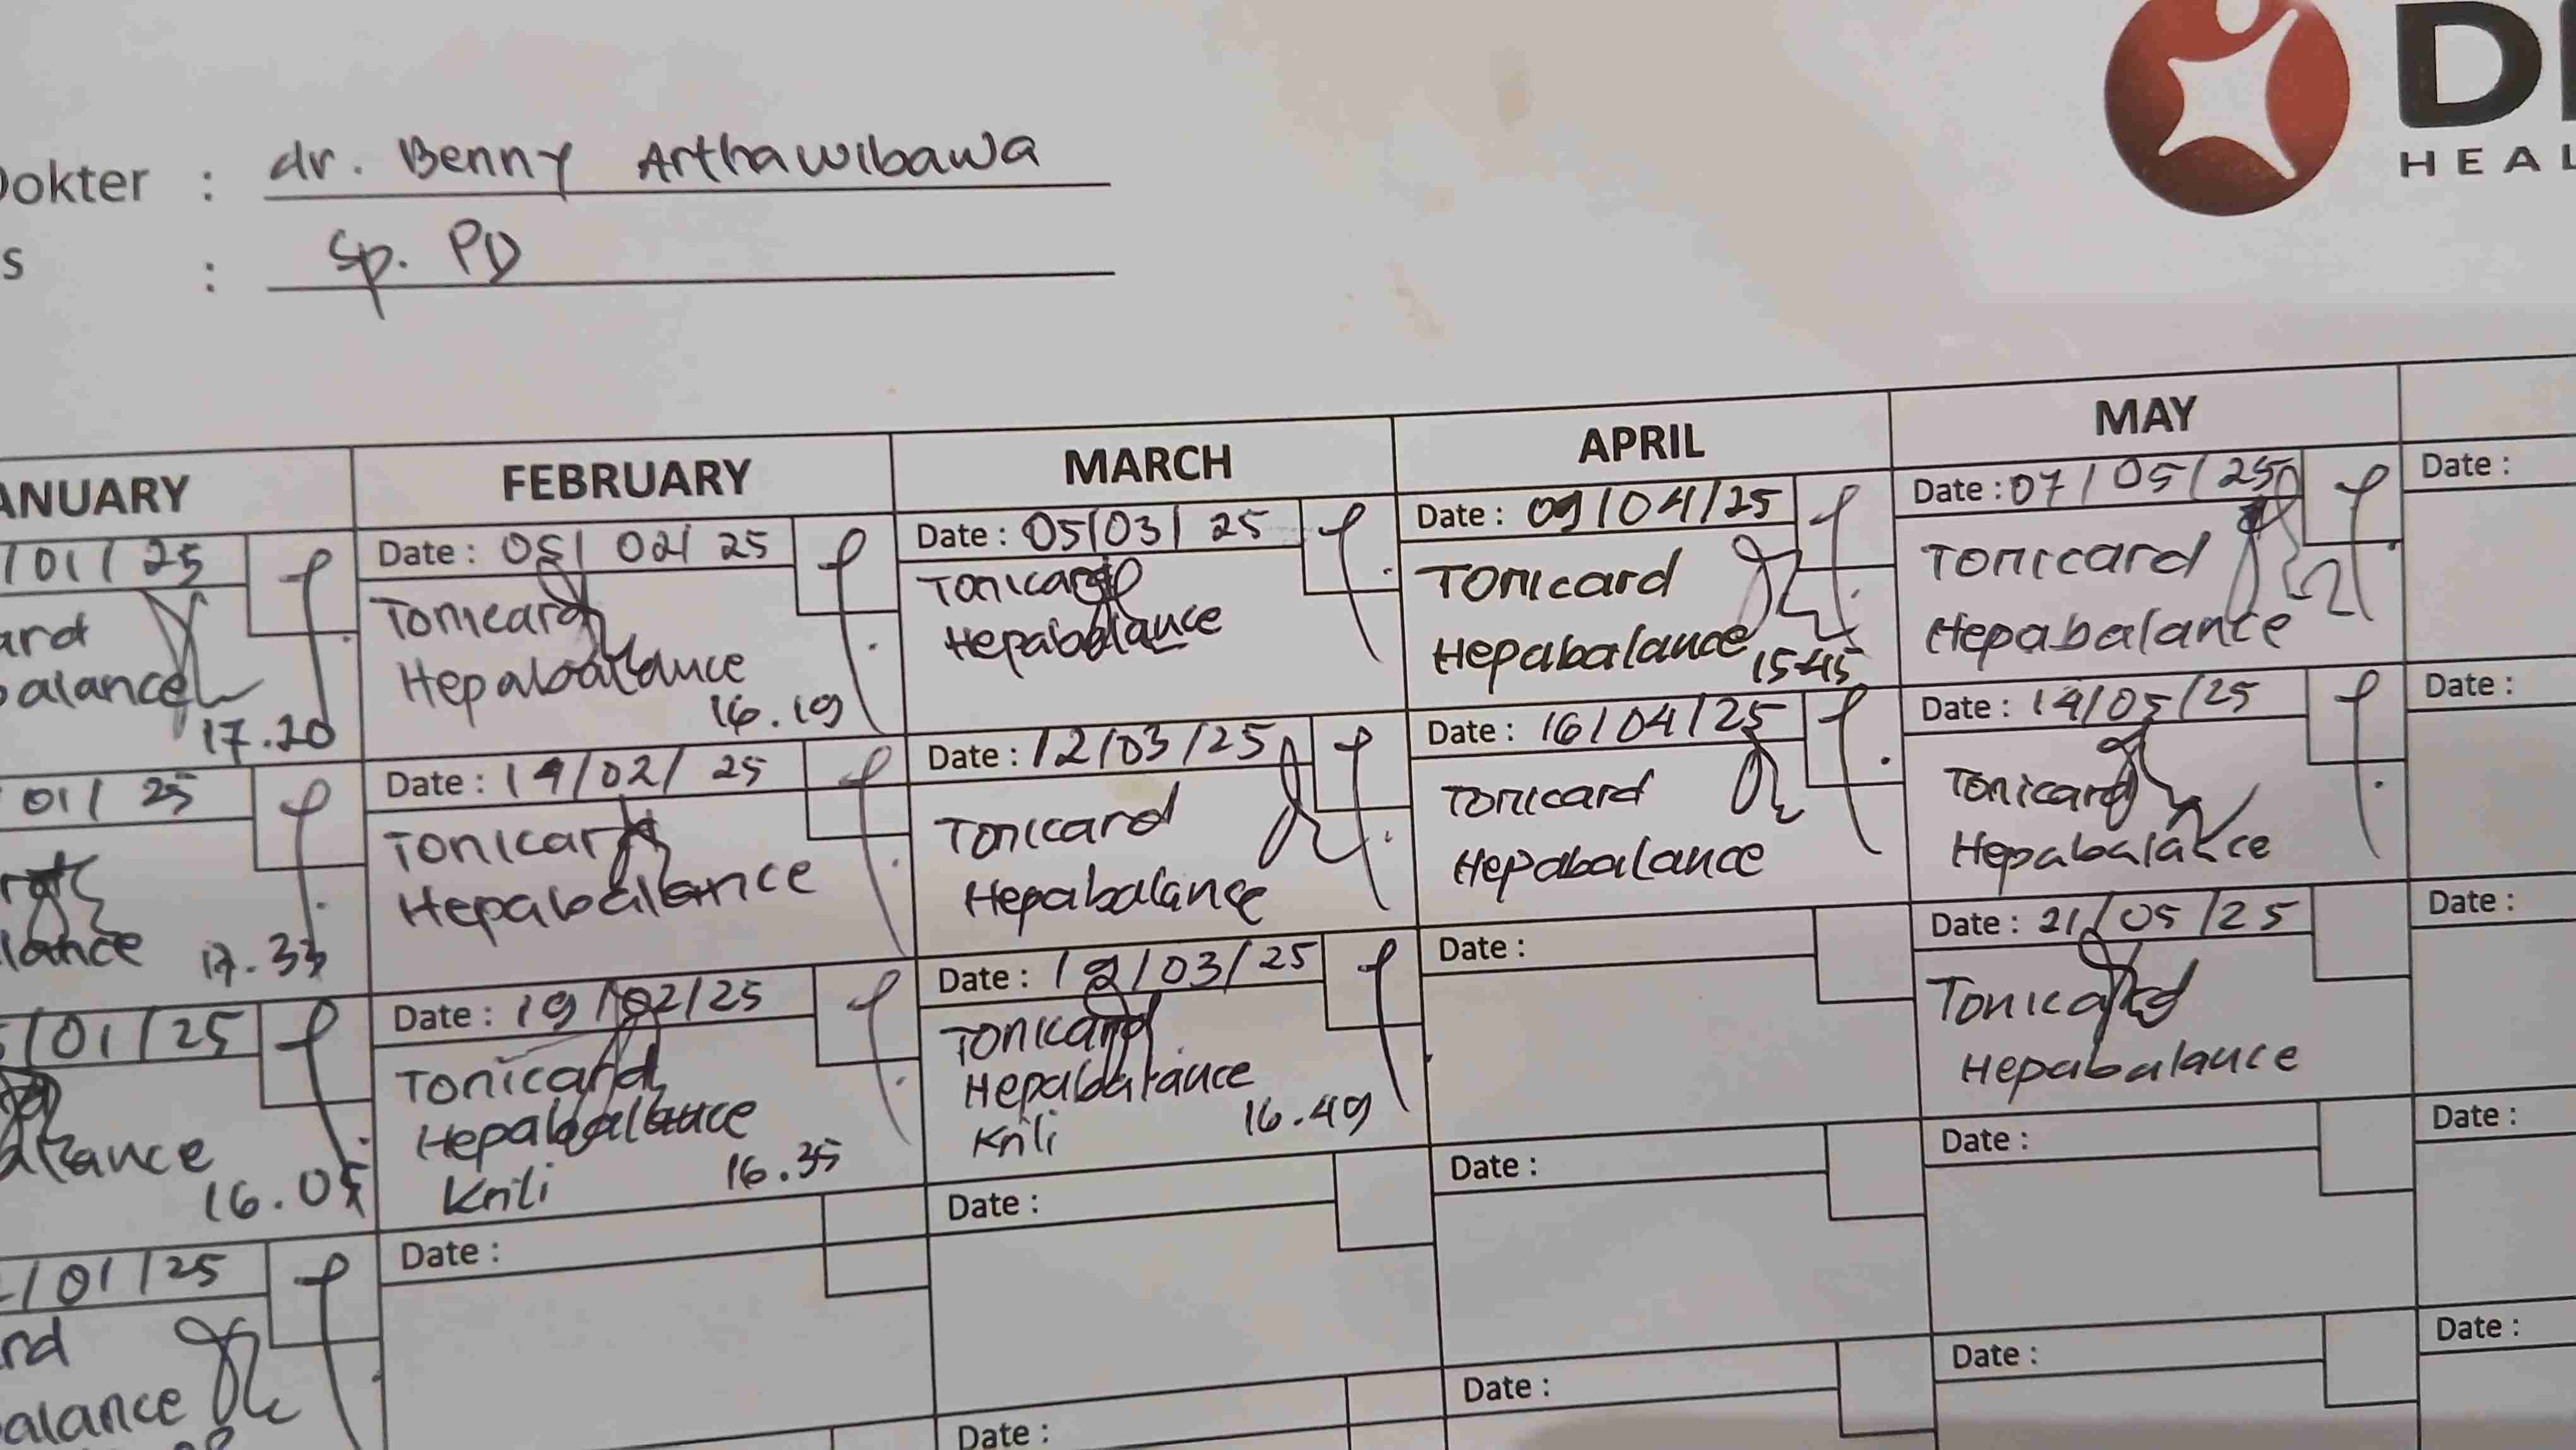 Dokter : dr. Benny Arthawibawa
s : Sp. PD
HEAL
ANUARY
/01/25
ard
balance
17.20
01/ 25
lance 17.33
/01/25
alance
16.05
/01/25
rd
alance
FEBRUARY
Date : 05/02/25
Tonicard
Hepabalance
16.19
Date : 14/02/25
Tonicard
Hepabalance
Date : 19/02/25
Tonicard
Hepabalance
Krili 16.35
Date :
MARCH
Date : 05/03/25
Tonicard
Hepabalance
Date : 12/03/25
Tonicard
Hepabalance
Date : 19/03/25
Tonicard
Hepabalance
Krili 16.49
Date :
Date :
APRIL
Date : 09/04/25
Tonicard
Hepabalance 15.45
Date : 16/04/25
Tonicard
Hepabalance
Date :
Date :
Date :
MAY
Date : 07/05/25
Tonicard
Hepabalance
Date : 14/05/25
Tonicard
Hepabalance
Date : 21/05/25
Tonicard
Hepabalance
Date :
Date :
Date :
Date :
Date :
Date :
Date :